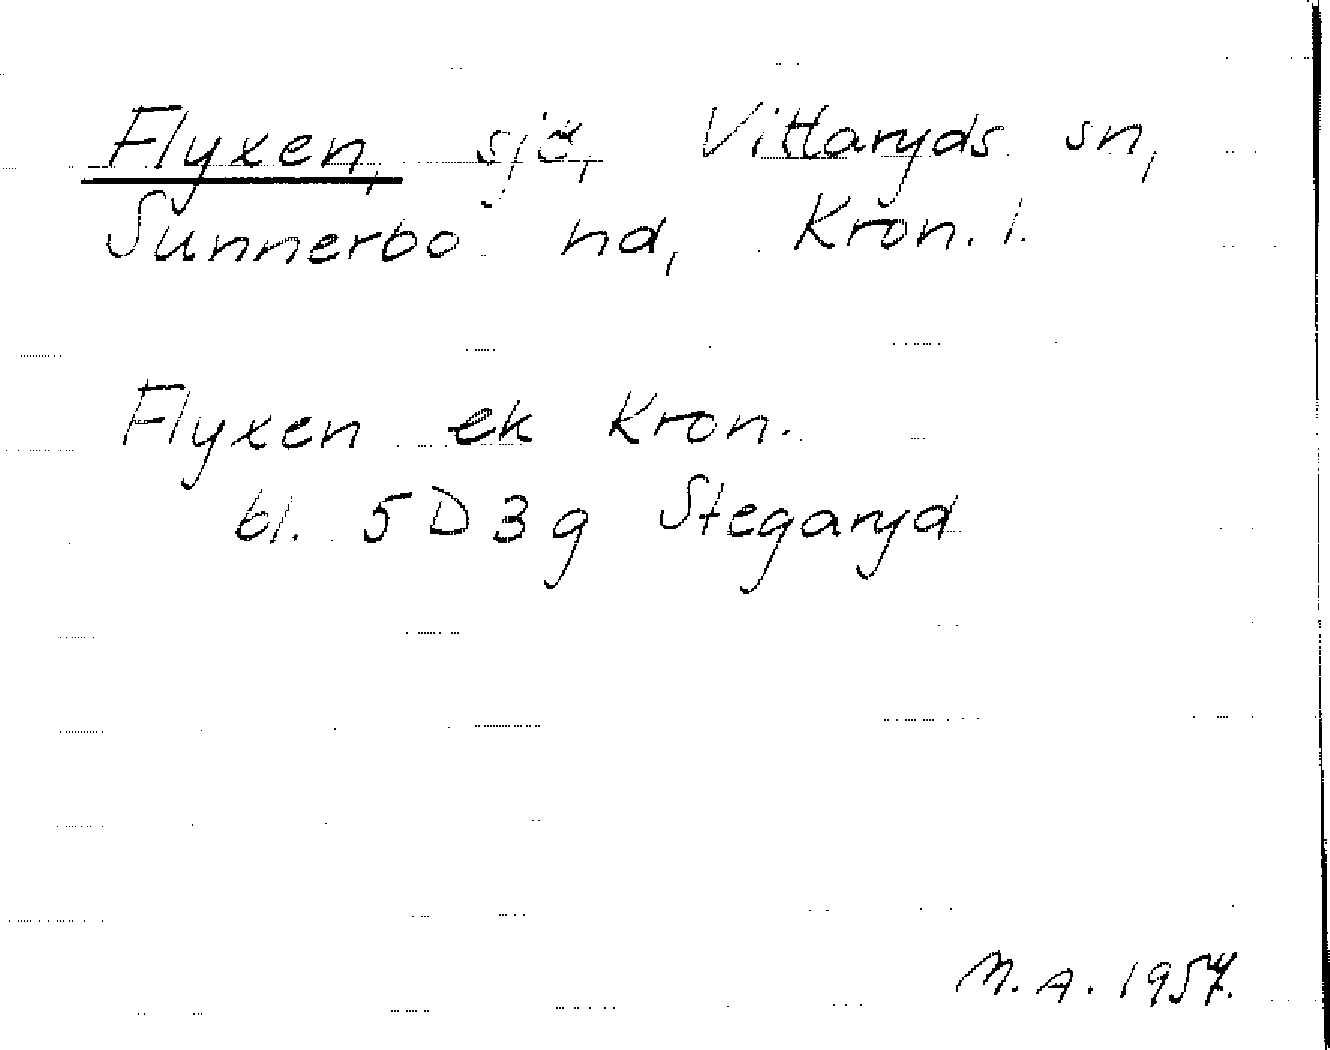 Flyxen, sjö, Vittaryds sn,
Sunnerbo hd, Kron. l.
Flyxen ek Kron.
bl. 5D3g Stegaryd
M. A. 1957.